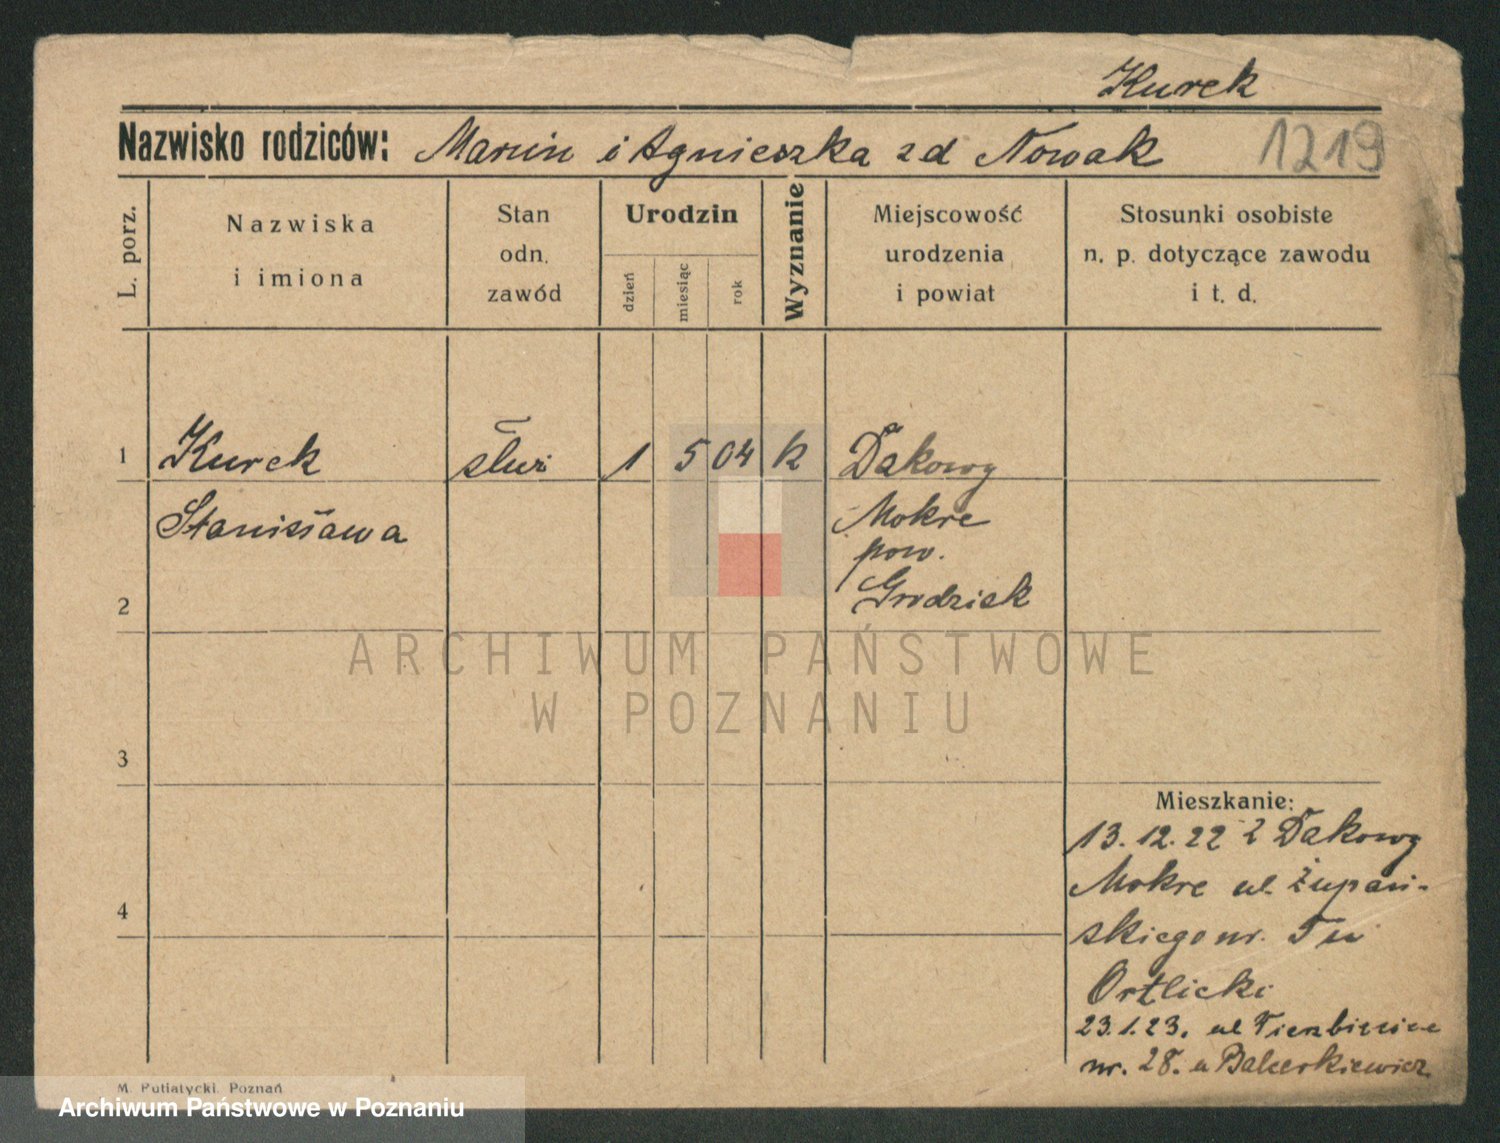 Kurek
Nazwisko rodziców: Marcin i Agnieszka zd Nowak 1219
L. porz.
Nazwiska
i imiona
Stan
odn.
zawód
Urodzin
dzień
miesiąc
rok
Wyznanie
Miejscowość
urodzenia
i powiat
Stosunki osobiste
n. p. dotyczące zawodu
i t. d.
1 Kurek służ 1 5 04 k Dakowy
Stanisława Mokre
pow.
2 Grodzisk
ARCHIWUM PAŃSTWOWE
W POZNANIU
3
Mieszkanie:
13.12.22 z Dakowy
Mokre ul. Żupań-
4
skiego nr.
Ortlicki
23.1.23. ul
nr. 28. u
M. Putiatycki, Poznań
Archiwum Państwowe w Poznaniu